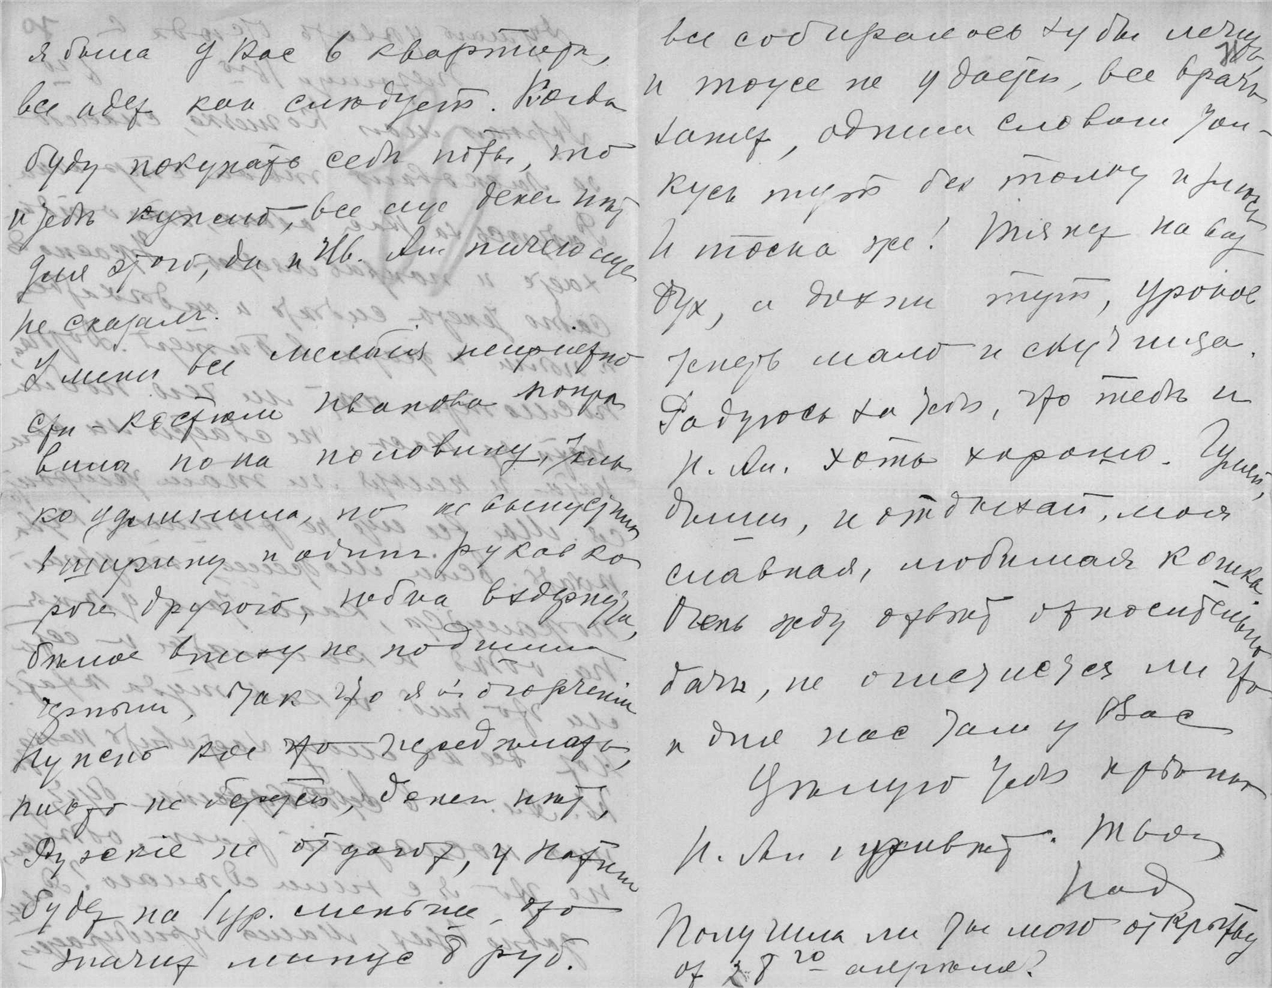 я была у Вас в квартирѣ,
все идет как слѣдует. Когда
буду покупать себѣ ноты, то
и тебѣ куплю, все еще денег нѣт
для этого, да и Ив. Ан. ничего еще
не сказалъ.
У меня все мелкія непріятно
сти костюм Иванова попра
вила но на половину,
ко удлинила, но не выпустила
в ширину и один рукав ко
роче другого, юбка вздернута,
бѣлое внизу не подшила
чѣрным, так что я в огорченіи
Нужно кое что передѣлать,
никто не берется, денег нѣт,
Рузскіе не отдают, у Наташи
будет на 1 ур. меньше, это
значит минус 8 руб.
все собиралась зубы лечить
и тоже не удается, все врачи
заняты, одним словом тол-
кусь тут без толку и злюсь
И тоска же! Тянет на воз
дух, а дохни тут, уроков
теперь мало и скучища.
Радуюсь за тебя, что тебѣ и
И. Ан. хоть хорошо. Гуляй,
дыши, и отдыхай, моя
славная, любимая кошка
Очень жду отвѣт относительно
дачи, не очистится ли что
и для нас там у Вас
Цѣлую тебя крѣпко
И. Ан. привѣт. Твоя
Над
Получила ли ты мою открытку
от 28го апрѣля?